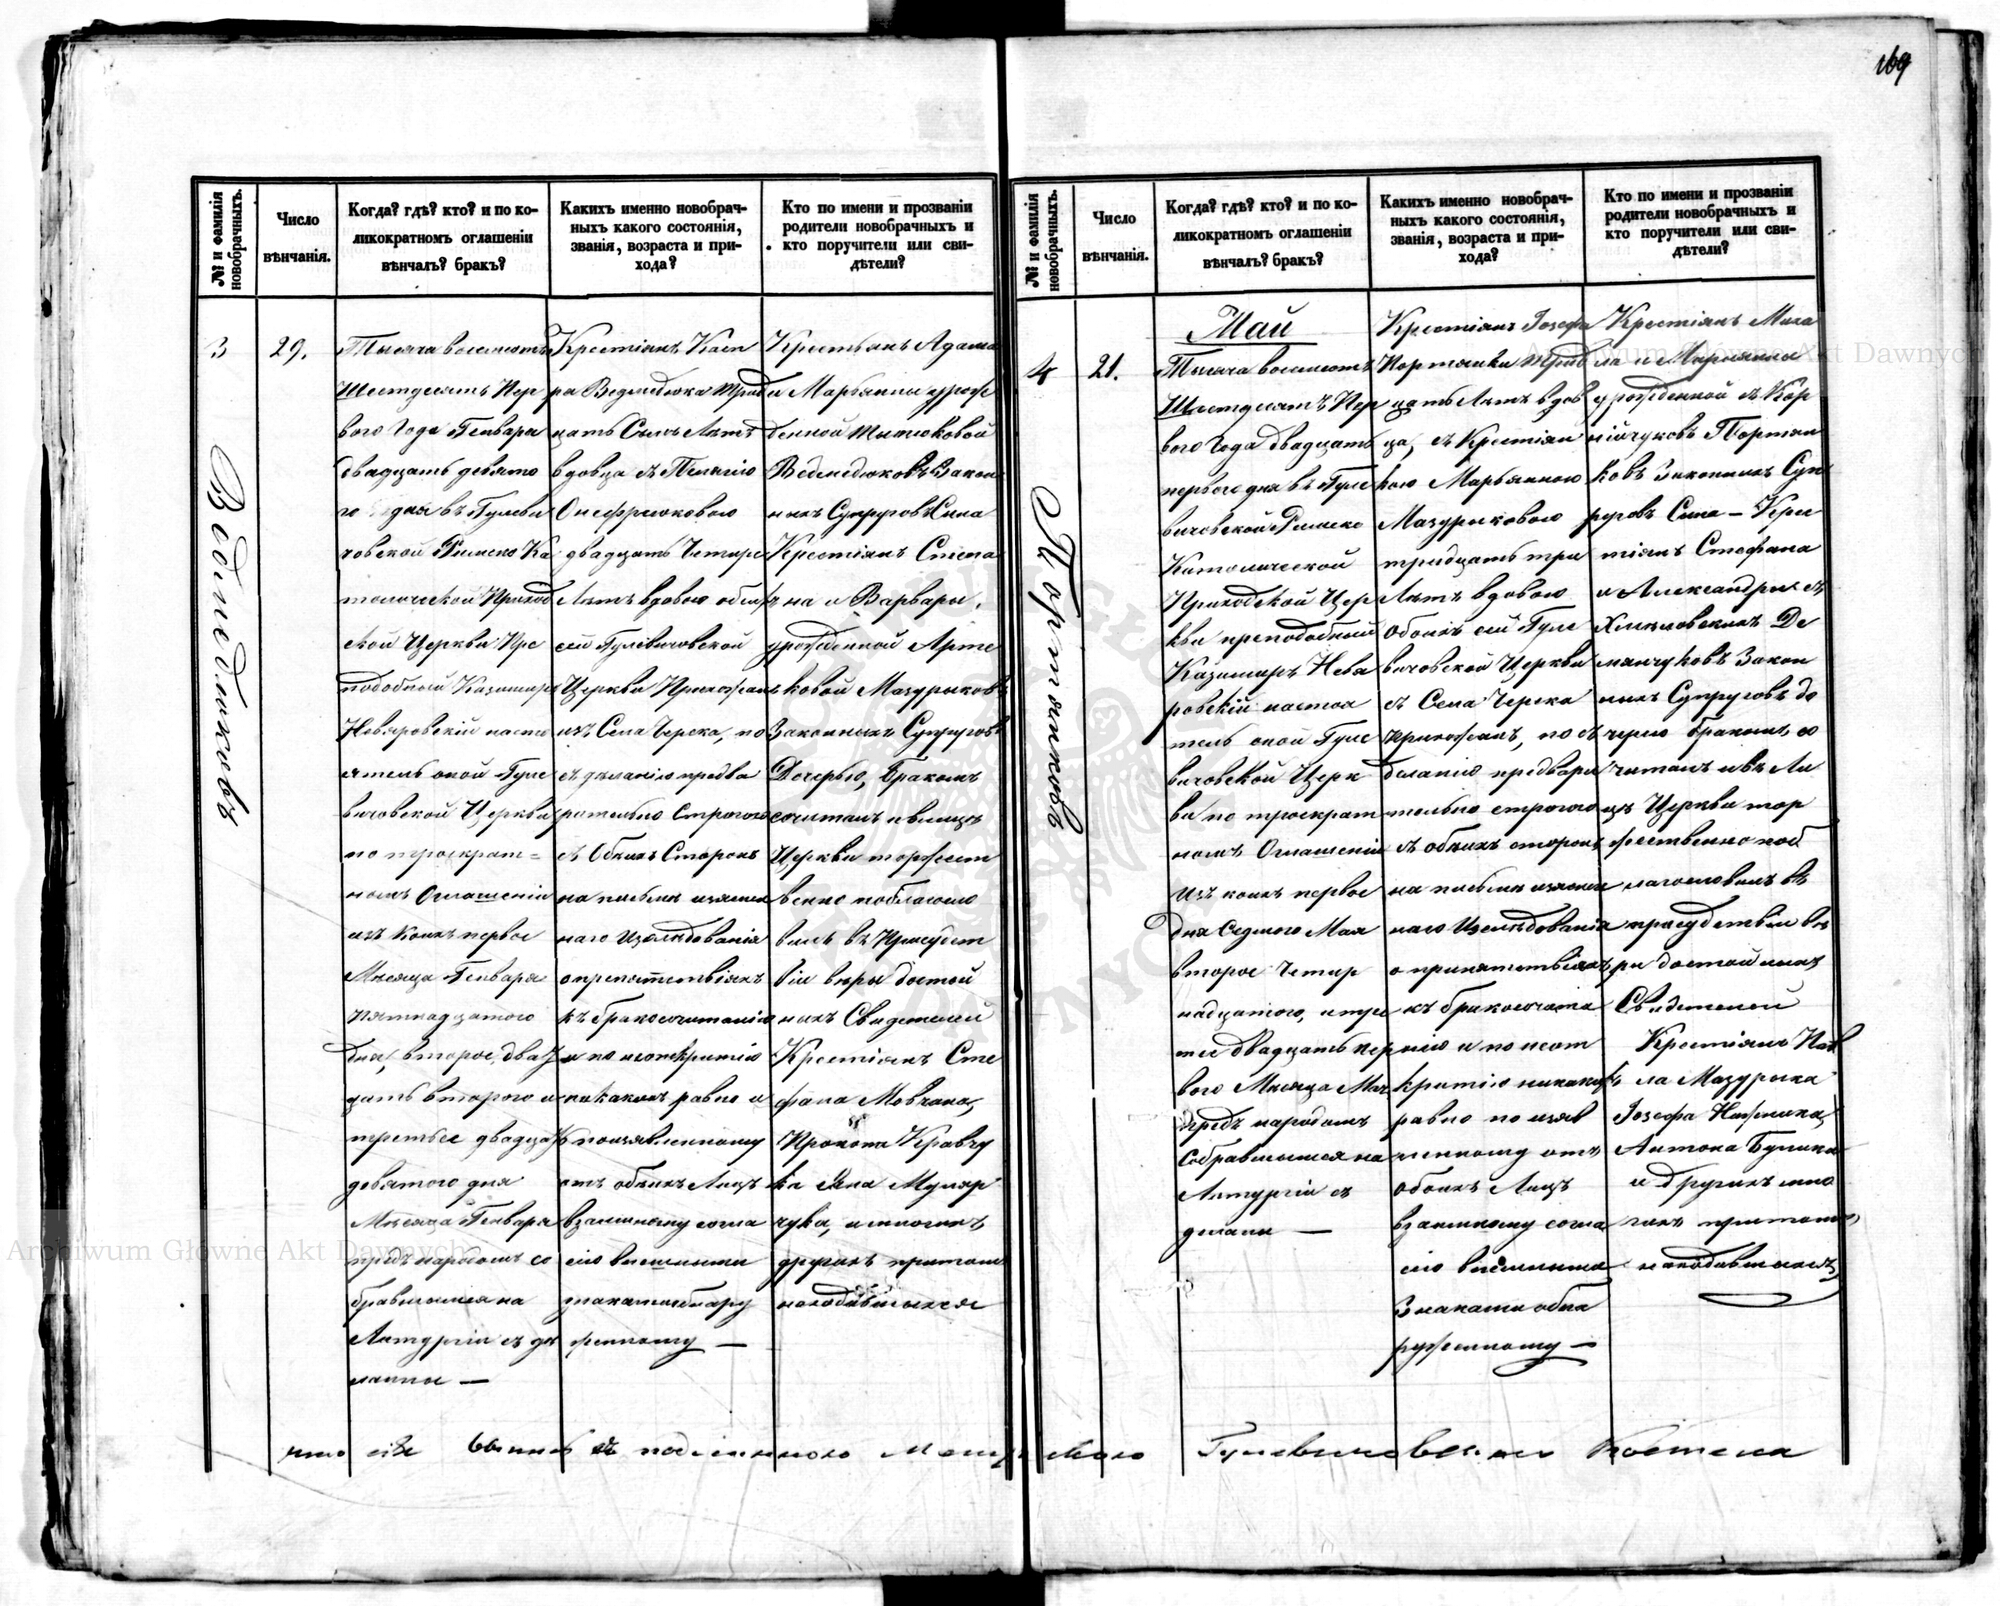 169
№ и фамилія новобрачныхъ.
Число вѣнчанія.
Когда? гдѣ? кто? и по ко-
ликократномъ оглашеніи
вѣнчалъ? бракъ?
Какихъ именно новобрач-
ныхъ какого состоянія,
званія, возраста и при-
хода?
Кто по имени и прозванію
родители новобрачныхъ и
кто поручители или сви-
дѣтели?
3
29.
Ведмедюковъ
Тысяча восемсотъ
Шестдесятъ Пер
вого Года Генваря
двадцать девято
го дня въ Гулеви
човской Римско Ка
толической Приход
ской Церкви Пре
подобный Казимиръ
Невяровскій насто
ятель оной Гуле
вичовской Церкви
по троекрат=
номъ Оглашеніи
изъ коихъ первое
Мѣсяца Генваря
пятнадцатого
дня, второе двад
цать второго и
третье двадцать
девятого дня
Мѣсяца Генваря
предъ народомъ со
бравшимся на
Литургіи сдѣ
ланны —
Крестіянъ Касп
ра Ведмедюка трид
цать Семь Лѣтъ
вдовца съ Пелагію
Онефрюковою
двадцать Четыре
Лѣтъ вдовою обоихъ
сей Гулевичовской
Церкви Прихожанъ
изъ Села Черска, по
сдѣланію предва
рительно Строгого
съ Обѣихъ Сторонъ
на письмѣ изложен
наго Изслѣдованія
о препятствіяхъ
къ бракосочитанію
и по неоткритію
никакихъ равно и
по изявленному
отъ обѣихъ Лицъ
взаимному согла
сію внешними
знаками обнару
женному —
Крестьянъ Адама
и Марьянны урож
денной Тытюковой
Ведмедюковъ Закон
ныхъ Супруговъ Сына
Крестіянъ Степа
на и Варвары,
урожденной Арте
ковой Мазурыковъ
Законныхъ Супруговъ
Дочерью, Бракомъ
сочиталъ и влицѣ
Церкви торжест
венно поблагосло
вилъ въ Присудст
віи вѣры достой
ныхъ Свидетелей
Крестіянъ Сте
фана Мовчана,
Прокопа Кравчу
ка Яна Муляр
чука, и многихъ
другихъ притомъ
находившихся
№ и фамилія новобрачныхъ.
Число вѣнчанія.
Когда? гдѣ? кто? и по ко-
ликократномъ оглашеніи
вѣнчалъ? бракъ?
Какихъ именно новобрач-
ныхъ какого состоянія,
званія, возраста и при-
хода?
Кто по имени и прозваніи
родители новобрачныхъ и
кто поручители или сви-
дѣтели?
4
21.
Портянковъ
Май
Тысяча восемсотъ
Шестдесятъ Пер
вого Года двадцать
первого дня въ Гуле
вичовской Римско
Католической
Приходской Цер
кви преподобный
Казимиръ Невя
ровскій настоя
тель оной Гуле
вичовской Церк
ви по троекрат
номъ Оглашеніи
изъ коихъ первое
дня Седмого Мая
второе Четыр
надцатого, и тре
тье двадцать пер
вого Мѣсяца Мая
предъ народомъ
Собравшимся на
Литургіи с
деланы —
Крестіянъ Іозефа
Портянки трид
цать Лѣтъ вдов
ца, съ Крестіян
кою Марьянною
Мазурыковою
тридцать три
Лѣтъ вдовою
Обоихъ сей Гуле
вичовской Церкви
съ Села Черска
прихожанъ, по съ
деланію предвари
тельно строгого
съ обѣихъ сторонъ
на письмѣ изложен
наго Изслѣдованія
о припятствіяхъ
къ бракосочита
нію и по неот
критію никакихъ
равно по изяв
ленному отъ
Обоихъ Лицъ
взаимному согла
сію внешними
Знаками обна
руженному —
Крестіянъ Миха
ла и Марьянны
урожденной съ Кор
нійчуковъ Портян
ковъ Законныхъ Суп
руговъ Сына — Крес
тіянъ Стефана
и Александры съ
Хмѣлевскихъ Де
мянчуковъ Закон
ныхъ Супруговъ до
черію бракомъ со
читалъ и въ Ли
цѣ Церкви тор
жественно поб
лагословилъ въ
присудствіи вѣ
ры достойныхъ
Свидетелей
Крестіянъ Пав
ла Мазурыка
Іозефа
Антона
и другихъ мно
гихъ притомъ
находившихся
что сія съ подлинною Гулевичовского Костела
Archiwum Główne Akt Dawnych
Archiwum Główne Akt Dawnych